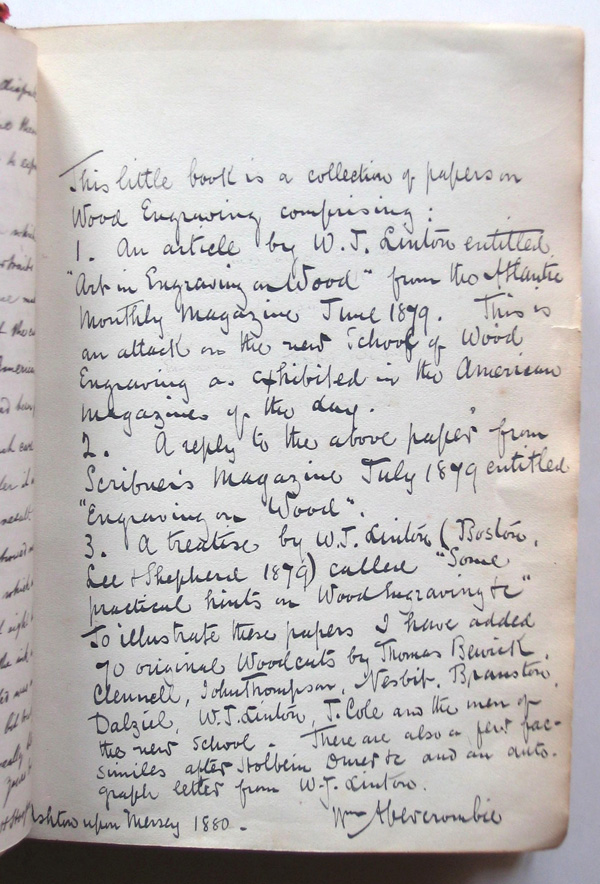 This little book is a collection of papers on
Wood Engraving comprising:
1. An article by W. J. Linton entitled
"Art in Engraving on Wood" from the Atlantic
Monthly Magazine June 1879. This is
an attack on the new School of Wood
Engraving as exhibited in the American
Magazines of the day.
2. A reply to the above paper from
Scribner's Magazine July 1879 entitled
"Engraving on Wood".
3. A treatise by W. J. Linton (Boston.
Lee & Shepherd 1879) called "Some
practical hints on Wood Engraving &c"
To illustrate these papers I have added
70 original Woodcuts by Thomas Bewick.
Clennell, John Thompson, Nesbit, Branston,
Dalziel, W. J. Linton, T. Cole and the men of
the new School. There are also a few fac-
similes after Holbein Durer &c and an auto-
graph letter from W. J. Linton.
Wm Abercrombie
Ashton upon Mersey 1880.